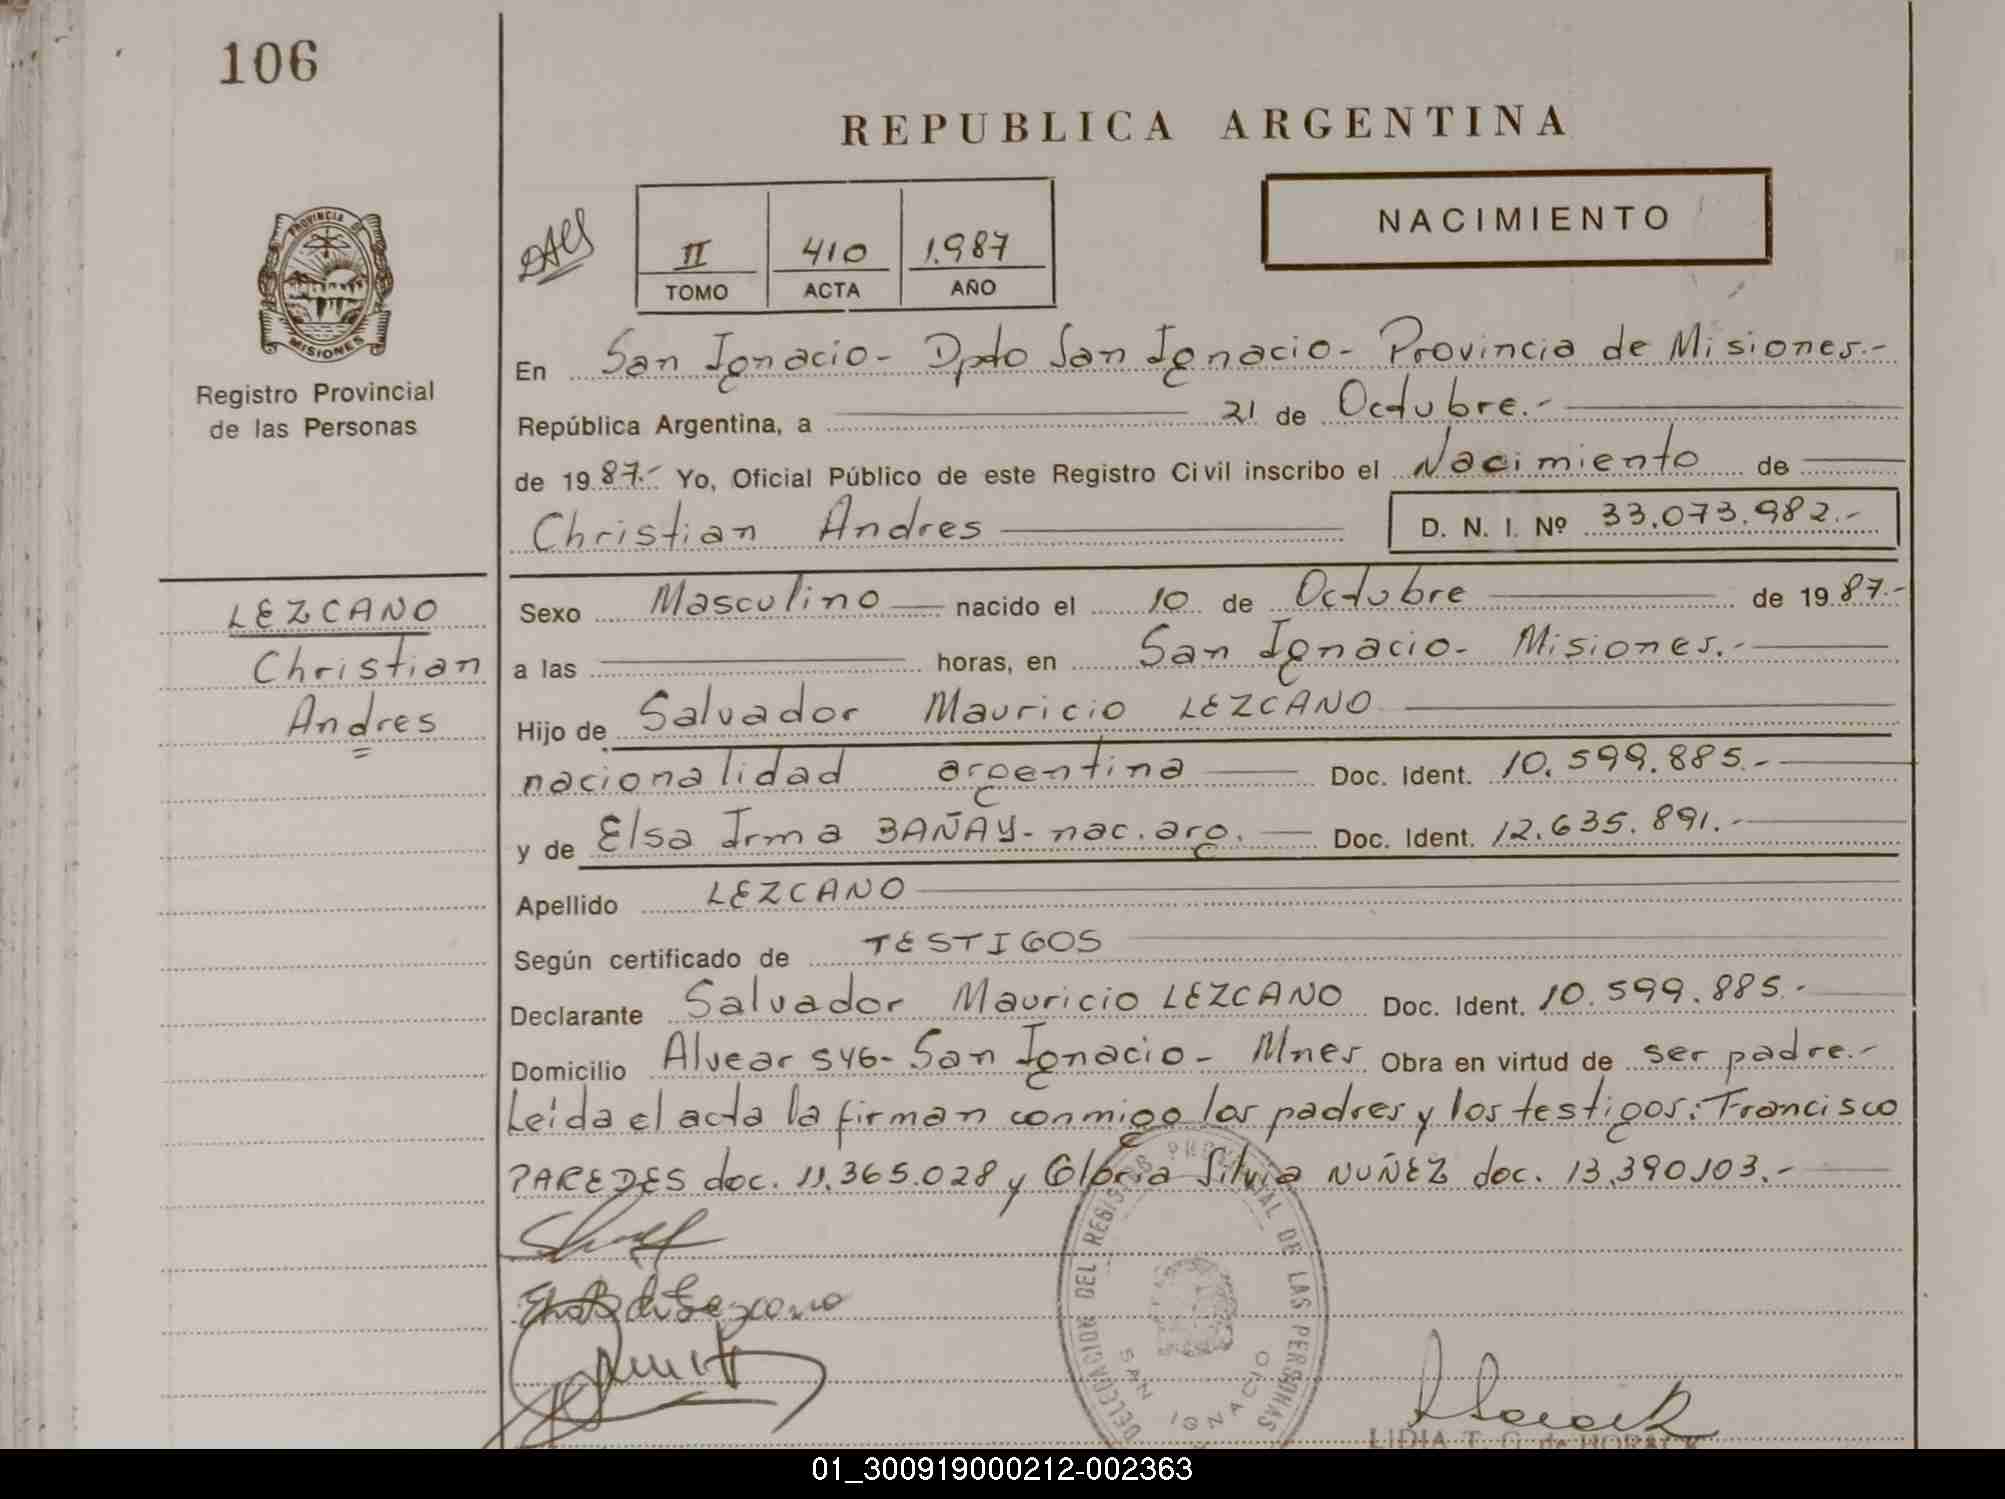 106
REPUBLICA ARGENTINA
NACIMIENTO
II 410 1.987
TOMO ACTA AÑO
PROVINCIA DE
MISIONES
Registro Provincial
de las Personas
En San Ignacio- Dpto San Ignacio- Provincia de Misiones.-
República Argentina, a 21 de Octubre.-
de 19 87.- Yo, Oficial Público de este Registro Civil inscribo el Nacimiento de
Christian Andres D. N. I. Nº 33.073.982.-
LEZCANO
Christian
Andres
Sexo Masculino nacido el 10 de Octubre de 19 87.-
a las horas, en San Ignacio- Misiones.-
Hijo de Salvador Mauricio LEZCANO
nacionalidad argentina Doc. Ident. 10.599.885.-
y de Elsa Irma BAÑAY- nac. arg. Doc. Ident. 12.635.891.-
Apellido LEZCANO
Según certificado de TESTIGOS
Declarante Salvador Mauricio LEZCANO Doc. Ident. 10.599.885.-
Domicilio Alvear 546- San Ignacio- Mnes Obra en virtud de ser padre.-
Leída el acta la firman conmigo los padres y los testigos: Francisco
PAREDES doc. 11.365.028 y Gloria Silvia NUÑEZ doc. 13.390.103.-
DELEGACION DEL REGISTRO PROVINCIAL DE LAS PERSONAS
SAN IGNACIO
de Lezcano
LIDIA T. G. de HORACK
01_300919000212-002363